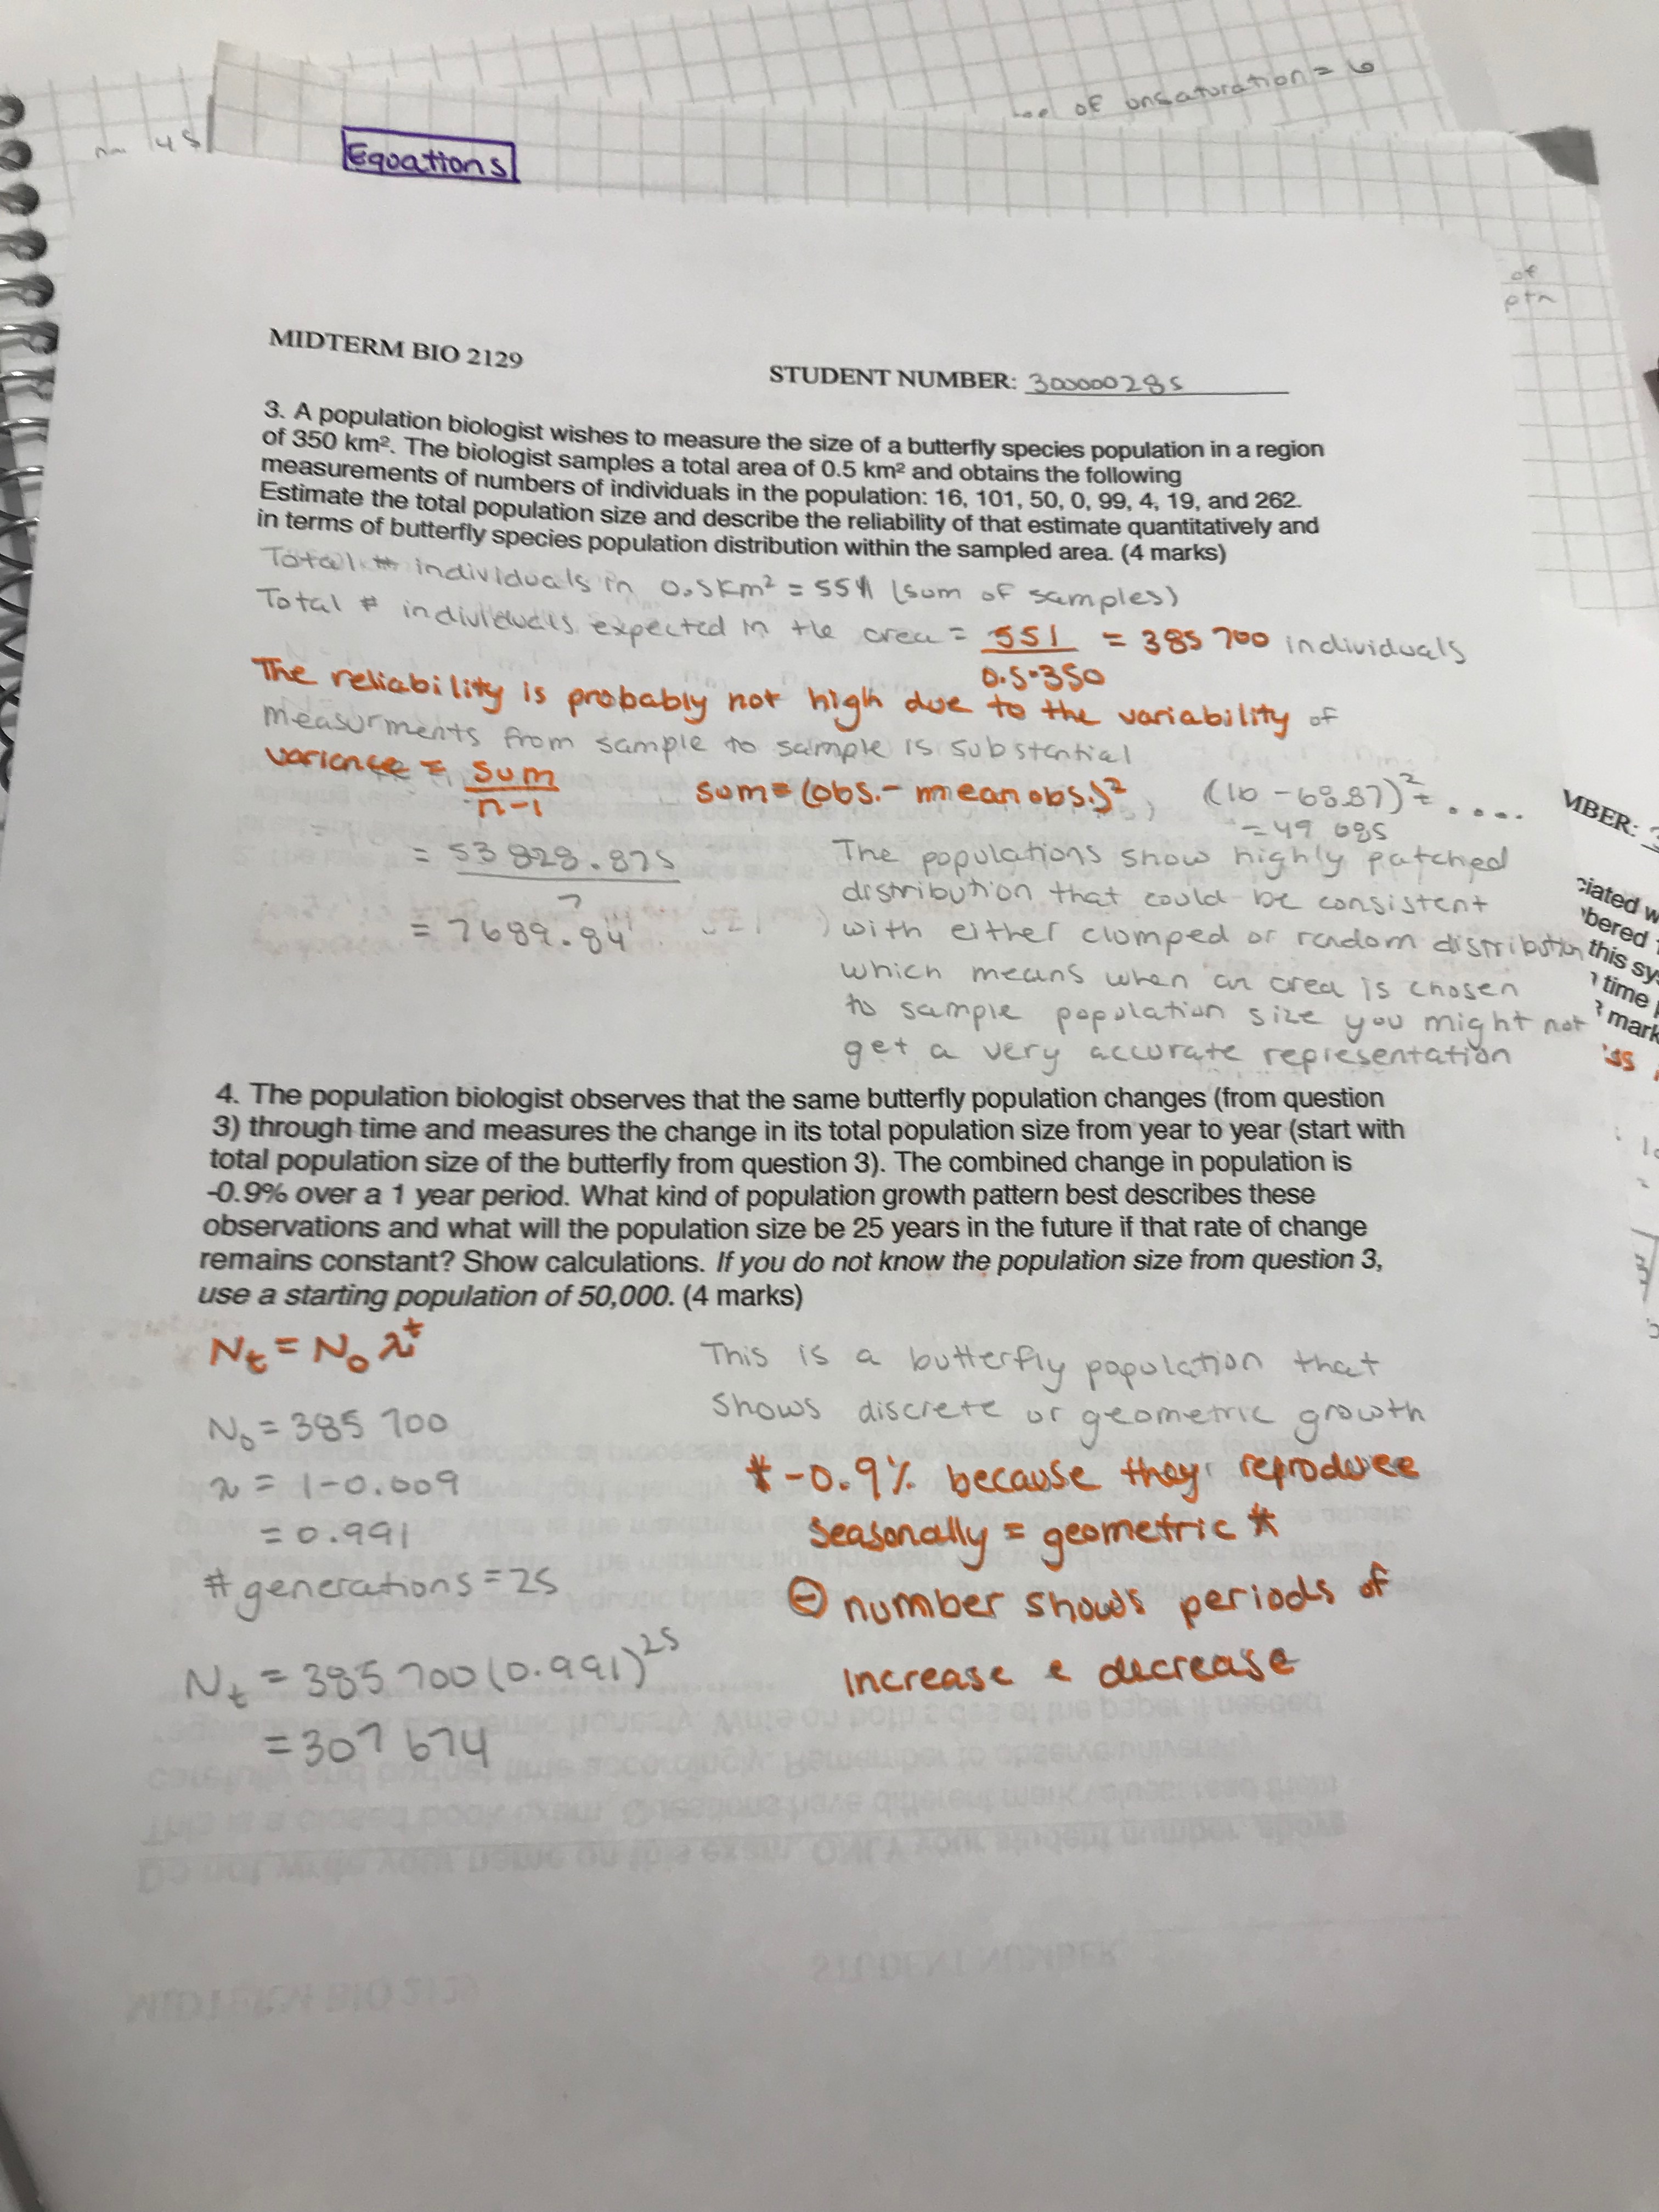 of unsaturation = 6
145
Equations
of
MIDTERM BIO 2129
STUDENT NUMBER: 300000285
3. A population biologist wishes to measure the size of a butterfly species population in a region
of 350 km². The biologist samples a total area of 0.5 km² and obtains the following
measurements of numbers of individuals in the population: 16, 101, 50, 0, 99, 4, 19, and 262.
Estimate the total population size and describe the reliability of that estimate quantitatively and
in terms of butterfly species population distribution within the sampled area. (4 marks)
Total # individuals in 0.5km² = 551 (sum of samples)
Total # individuals expected in the area = 551 / 0.5•350 = 385 700 individuals
The reliability is probably not high due to the variability of
measurments from sample to sample is substantial
variance = sum / n-1
sum = (obs. - mean obs.)², (16 - 68.87)² + ....
= 49 085
= 53 828.875 / 7
= 7689.84
The populations show highly patched
distribution that could be consistent
with either clomped or random distribution
which means when an area is chosen
to sample population size you might not
get a very accurate representation
MBER:
ciated w
bered
this sy
time
mark
4. The population biologist observes that the same butterfly population changes (from question
3) through time and measures the change in its total population size from year to year (start with
total population size of the butterfly from question 3). The combined change in population is
-0.9% over a 1 year period. What kind of population growth pattern best describes these
observations and what will the population size be 25 years in the future if that rate of change
remains constant? Show calculations. If you do not know the population size from question 3,
use a starting population of 50,000. (4 marks)
Nt = N₀ λᵗ
N₀ = 385 700
λ = 1-0.009
= 0.991
# generations = 25
Nt = 385 700 (0.991)²⁵
= 307 674
This is a butterfly population that
shows discrete or geometric growth
* -0.9% because they reproduce
seasonally = geometric *
⊖ number shows periods of
increase & decrease